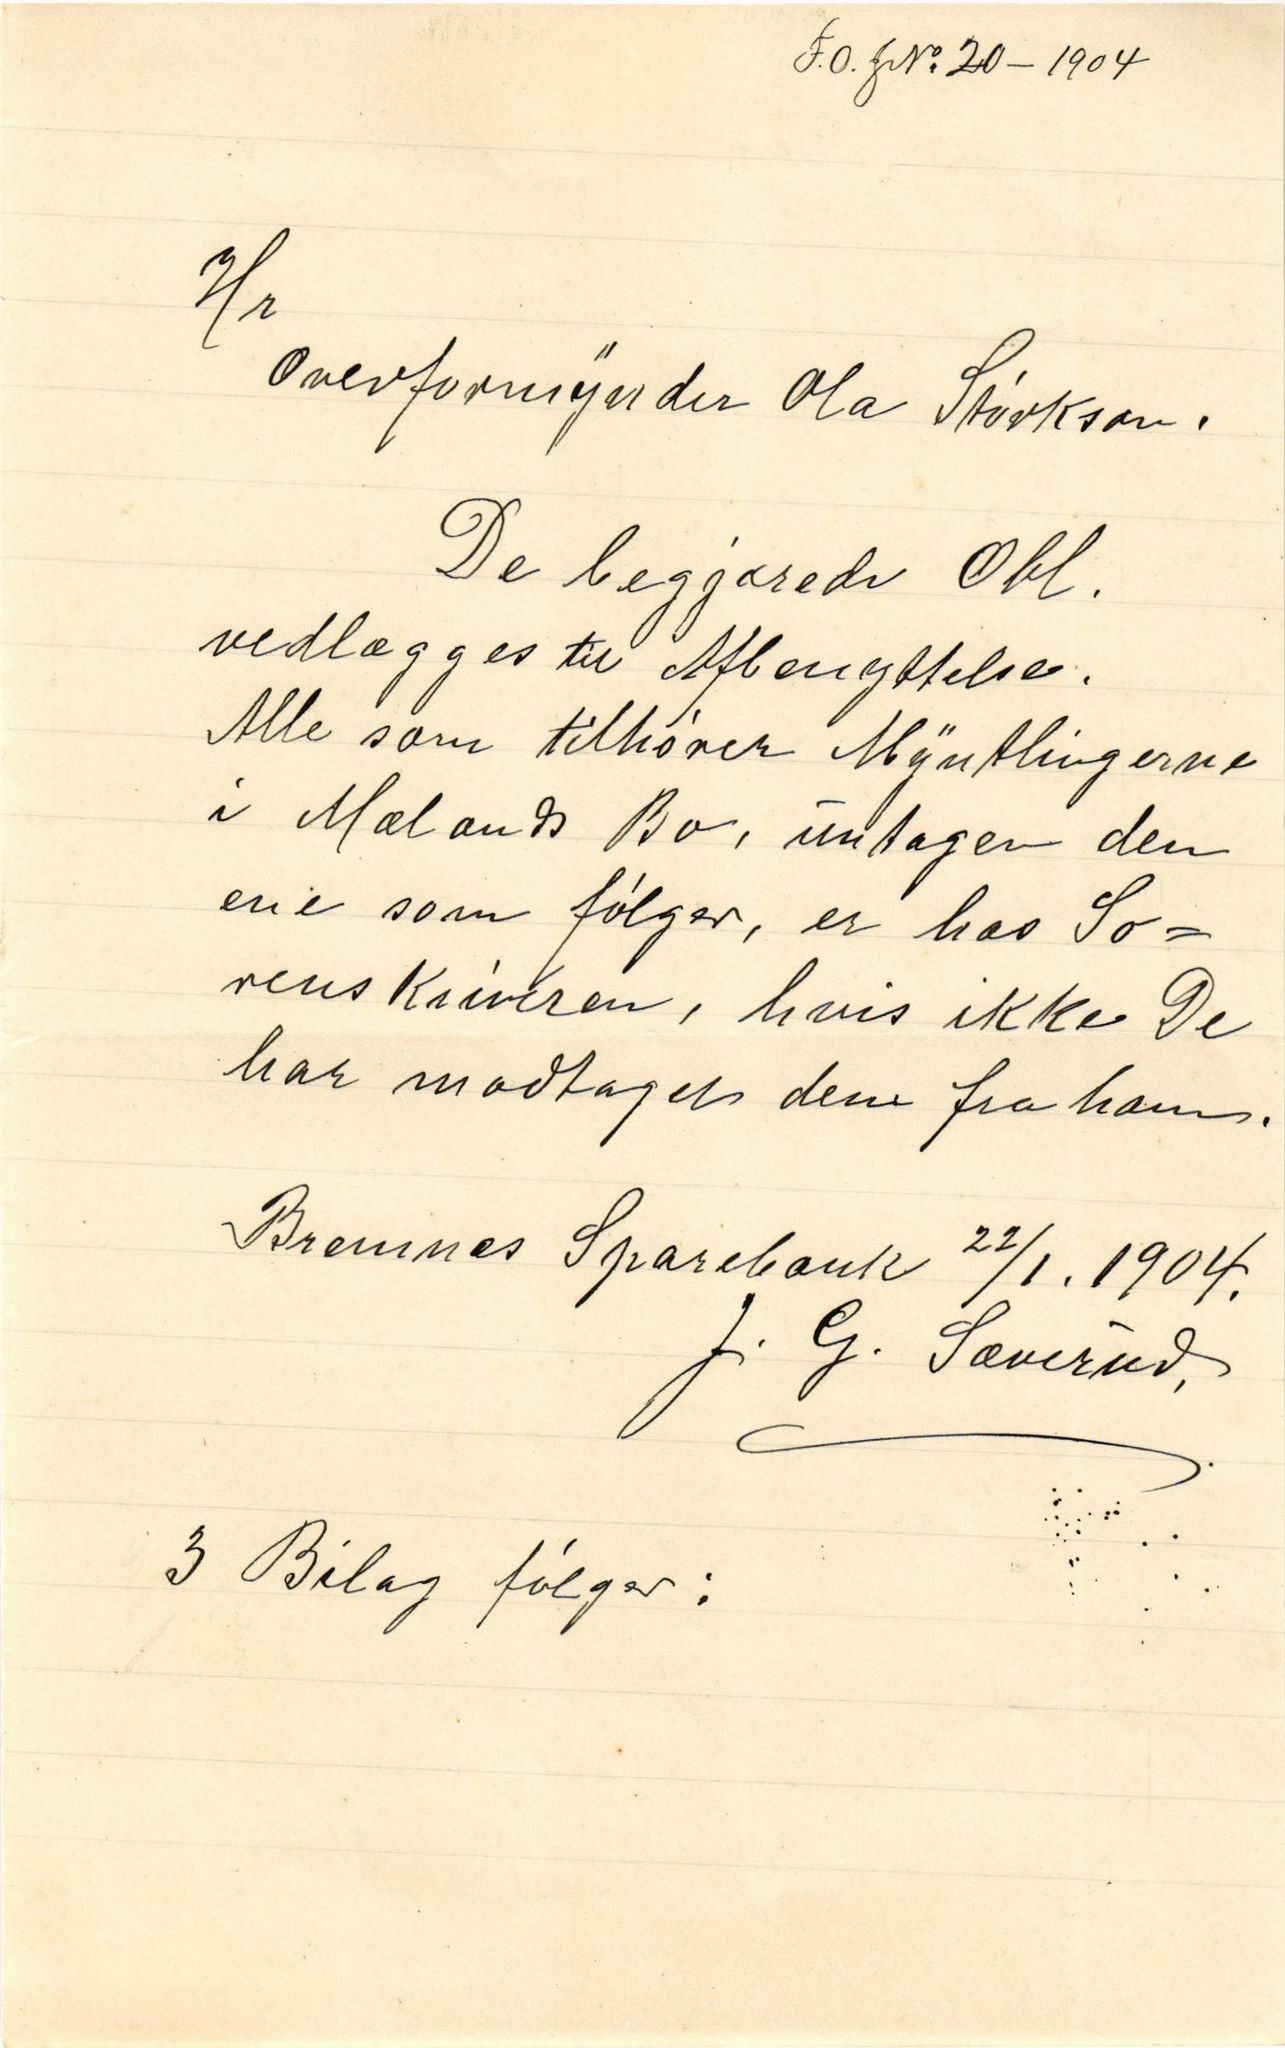 F.O. J No. 20 – 1904
Hr
Overformynder Ola Størkson.
De begjærede Obl.
vedlægges til Afbenyttelse.
Alle som tilhører Myntlingerne
i Mælands Bo, untagen den
ene som følger, er hos So=
renskriveren, hvis ikke De
har modtaget dem fra ham.
Bremnes Sparebank 22/1. 1904.
J. G. Sæverud,
3 Bilag følger: